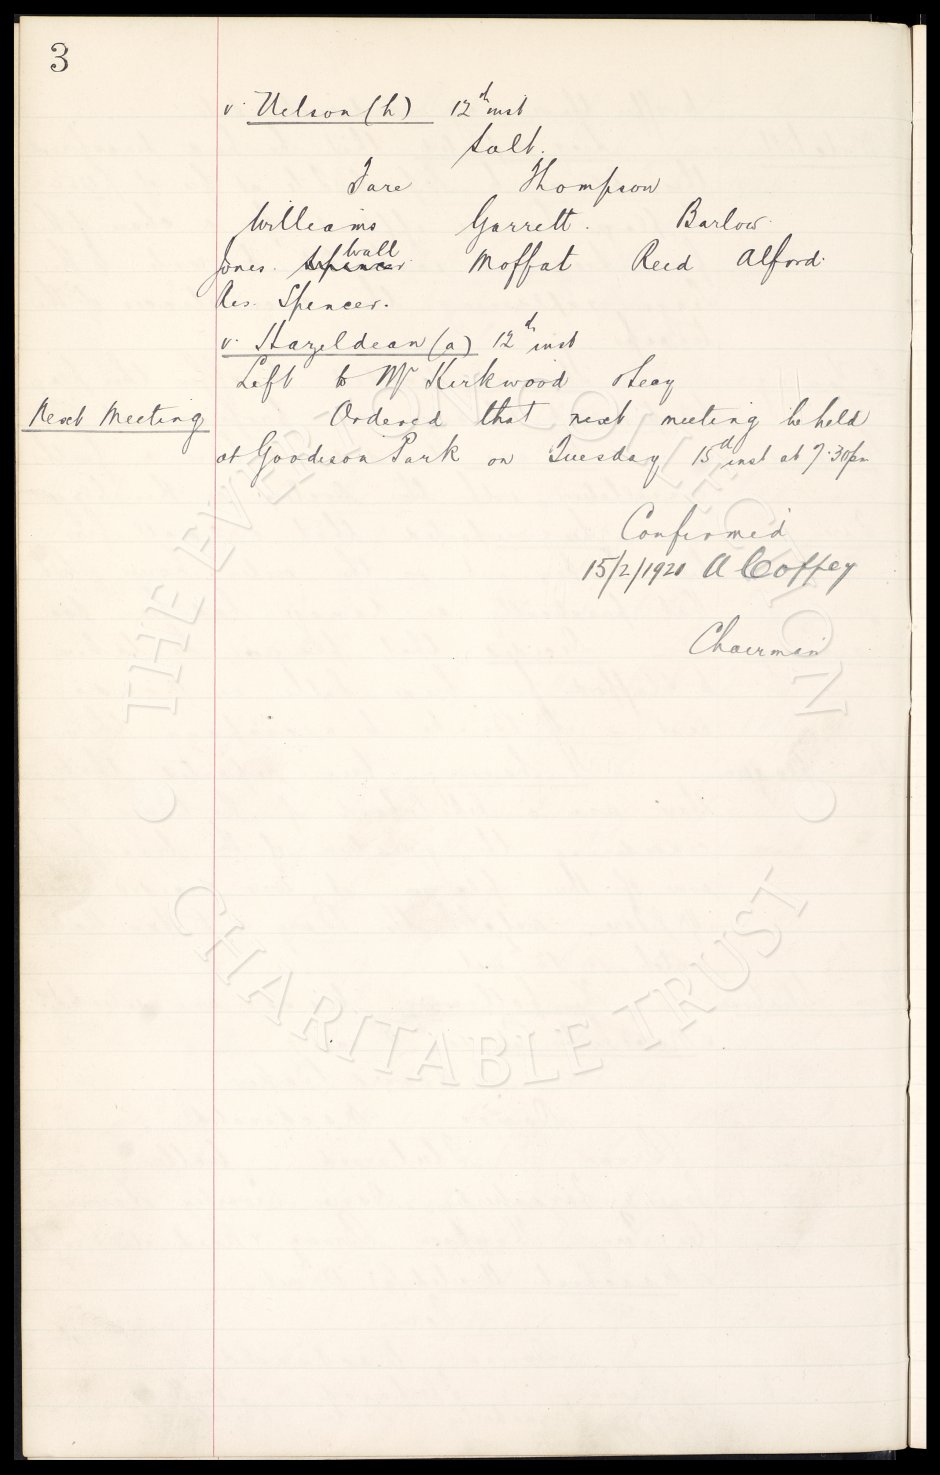 3
v. Nelson (h) 12th inst
Salt.
Fare Thompson
Williams Garrett. Barlow.
Jones. Spencer. Wall Moffat Reid Alford.
Res. Spencer.
v. Hazeldean (a) 12th inst
Left to Mr Kirkwood
Next Meeting Ordered that next meeting be held
at Goodison Park on Tuesday 15th inst at 7.30pm
Confirmed
15/2/1921 A Coffey
Chairman
THE EVERTON COLLECTION
CHARITABLE TRUST